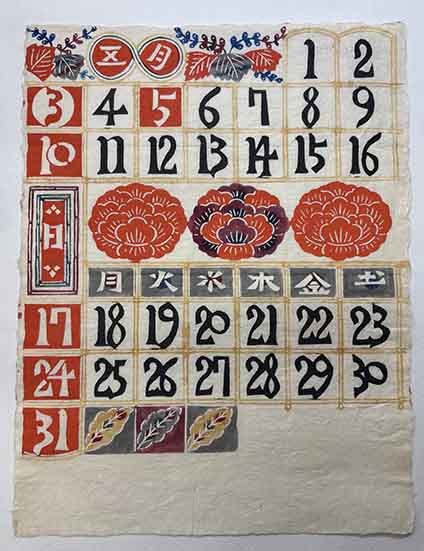 五月 1 2
3 4 5 6 7 8 9
10 11 12 13 14 15 16
日
月 火 水 木 金 土
17 18 19 20 21 22 23
24 25 26 27 28 29 30
31